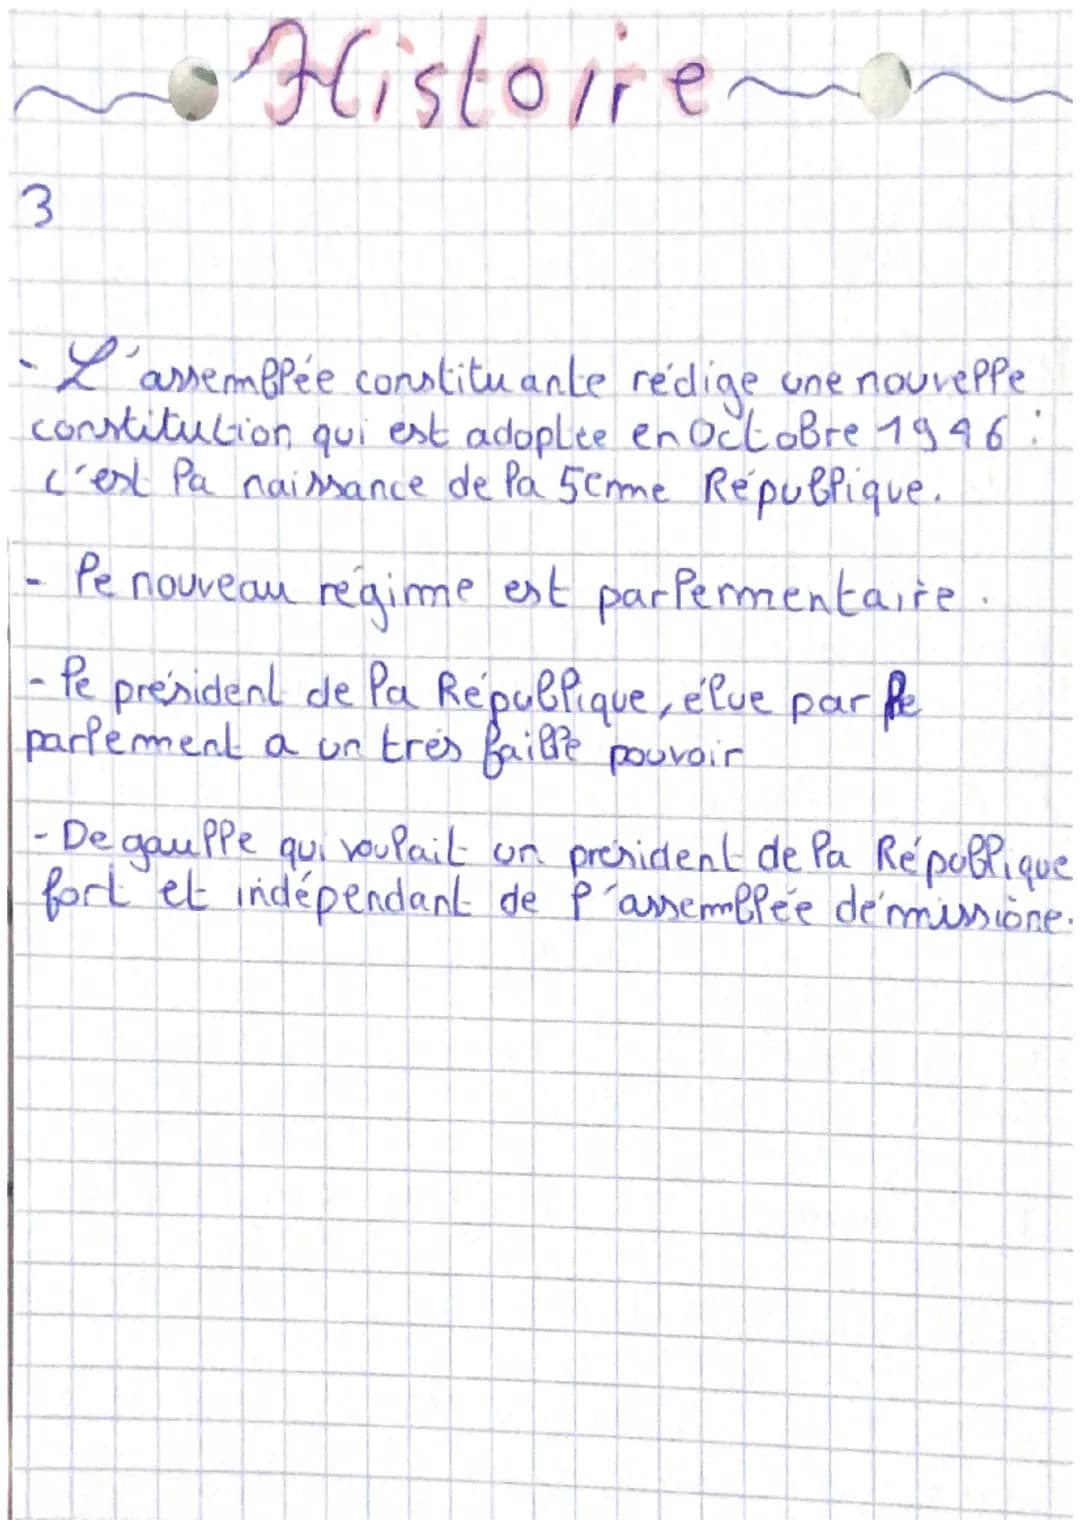 Histoire
3
- L'assemblée constituante rédige une nouvelle
constitution qui est adoptée en Octobre 1946 :
c'est la naissance de la 5eme République.
- le nouveau régime est parlementaire.
- le président de la République, élue par le
parlement a un très faible pouvoir
- De gaulle qui voulait un président de la République
fort et indépendant de l'assemblée démissione.